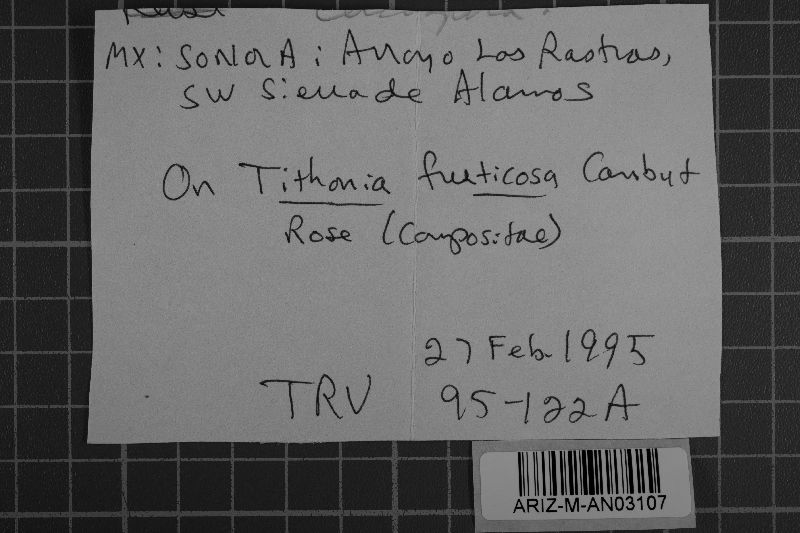 MX: SONORA: Arroyo Las Rastras,
SW Sierra de Alamos
On Tithonia fruticosa Canby &
Rose (Compositae)
27 Feb 1995
TRV 95-122A
ARIZ-M-AN03107